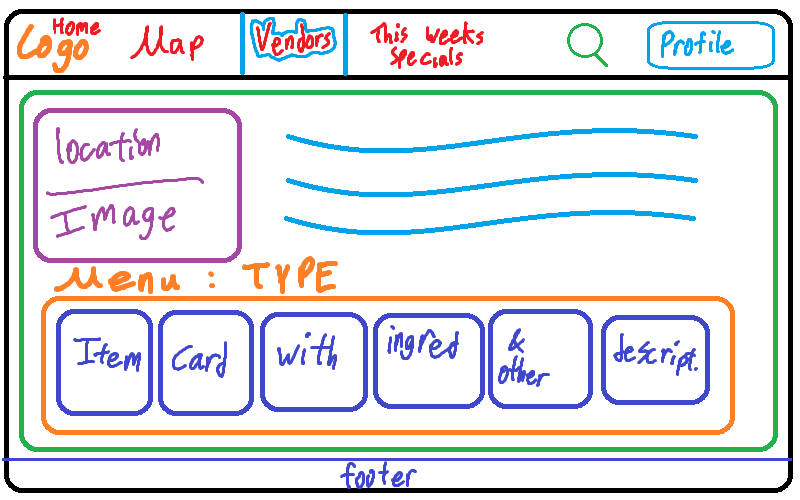 Home
Logo
Map
Vendors
This weeks
specials
Profile
location
Image
Menu : TYPE
Item
Card
with
ingred
&
other
descript.
footer